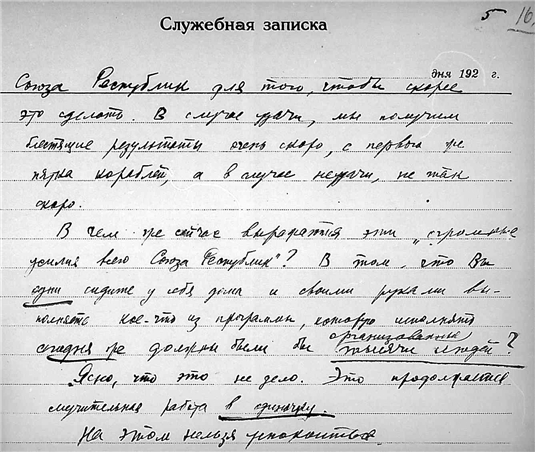 5 16
Служебная записка
дня 192 г.
Союза Республик для того, чтобы скорее
это сделать. В случае удачи, мы получим
блестящие результаты очень скоро, с первого же
пятка кораблей, а в случае неудачи, не так
скоро.
В чем же сейчас выражаются эти „огромные
усилия всего Союза Республик"? В том, что Вы
одни сидите у себя дома и своими руками вы-
полняете кое-что из программы, которую исполнять
сегодня же должны были бы организованные
тысячи людей?
Ясно, что это не дело. Это продолжается
мучительная работа в одиночку.
На этом нельзя успокоиться.